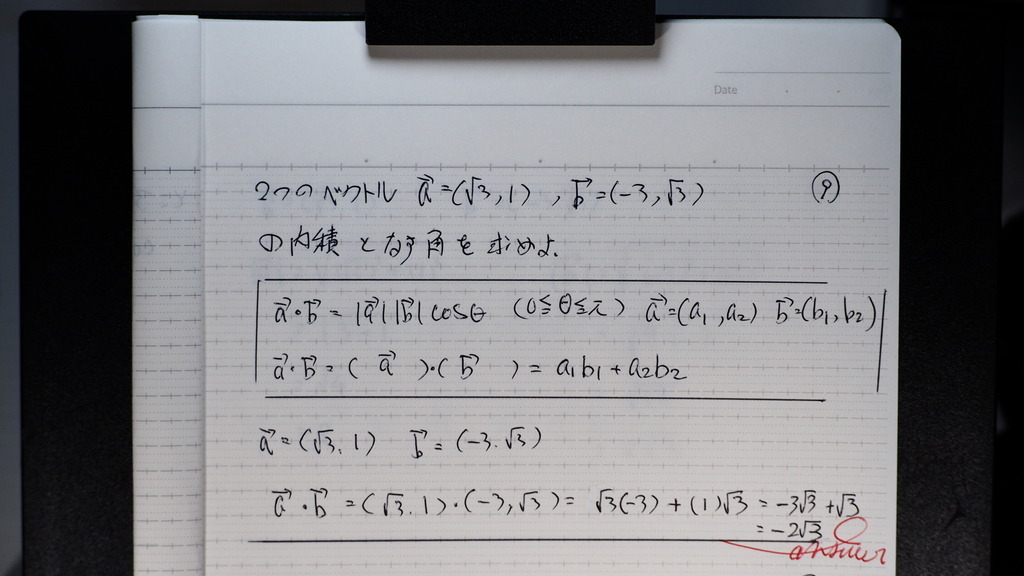 Date
2つのベクトル a⃗=(√3,1) , b⃗=(-3,√3) ⑨
の内積となす角を求めよ.
a⃗・b⃗ = |a⃗||b⃗|cosθ (0≦θ≦π) a⃗=(a₁,a₂) b⃗=(b₁,b₂)
a⃗・b⃗ = ( a⃗ )・( b⃗ ) = a₁b₁+a₂b₂
a⃗=(√3.1) b⃗=(-3.√3)
a⃗・b⃗ =(√3.1)・(-3,√3)= √3(-3)+(1)√3 = -3√3+√3
= -2√3
answer